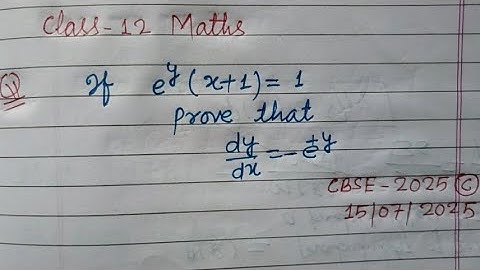 Class-12 Maths
Q If e^y (x+1) = 1
prove that
dy/dx = -e^{+y}
CBSE-2025 Ⓒ
15/07/2025